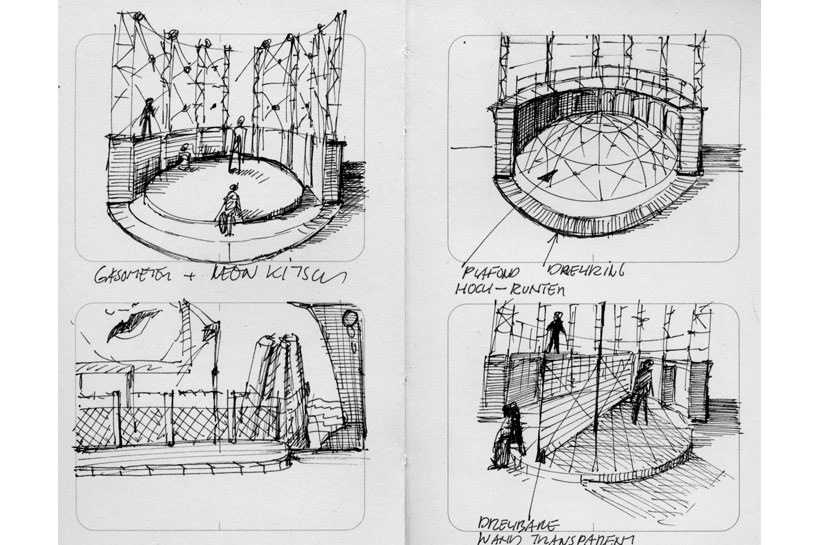 GASOMETER + NEON KITSCH
PLAFOND DREHRING
HOCH-RUNTER
DREHBARE
WAND TRANSPARENT